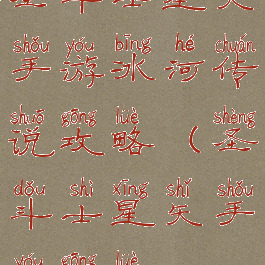 shǒu yóu bīng hé chuán
手游冰河传
shuō gōng lüè shèng
说攻略（圣
dǒu shì xīng shǐ shǒu
斗士星矢手
yóu gōng lüè